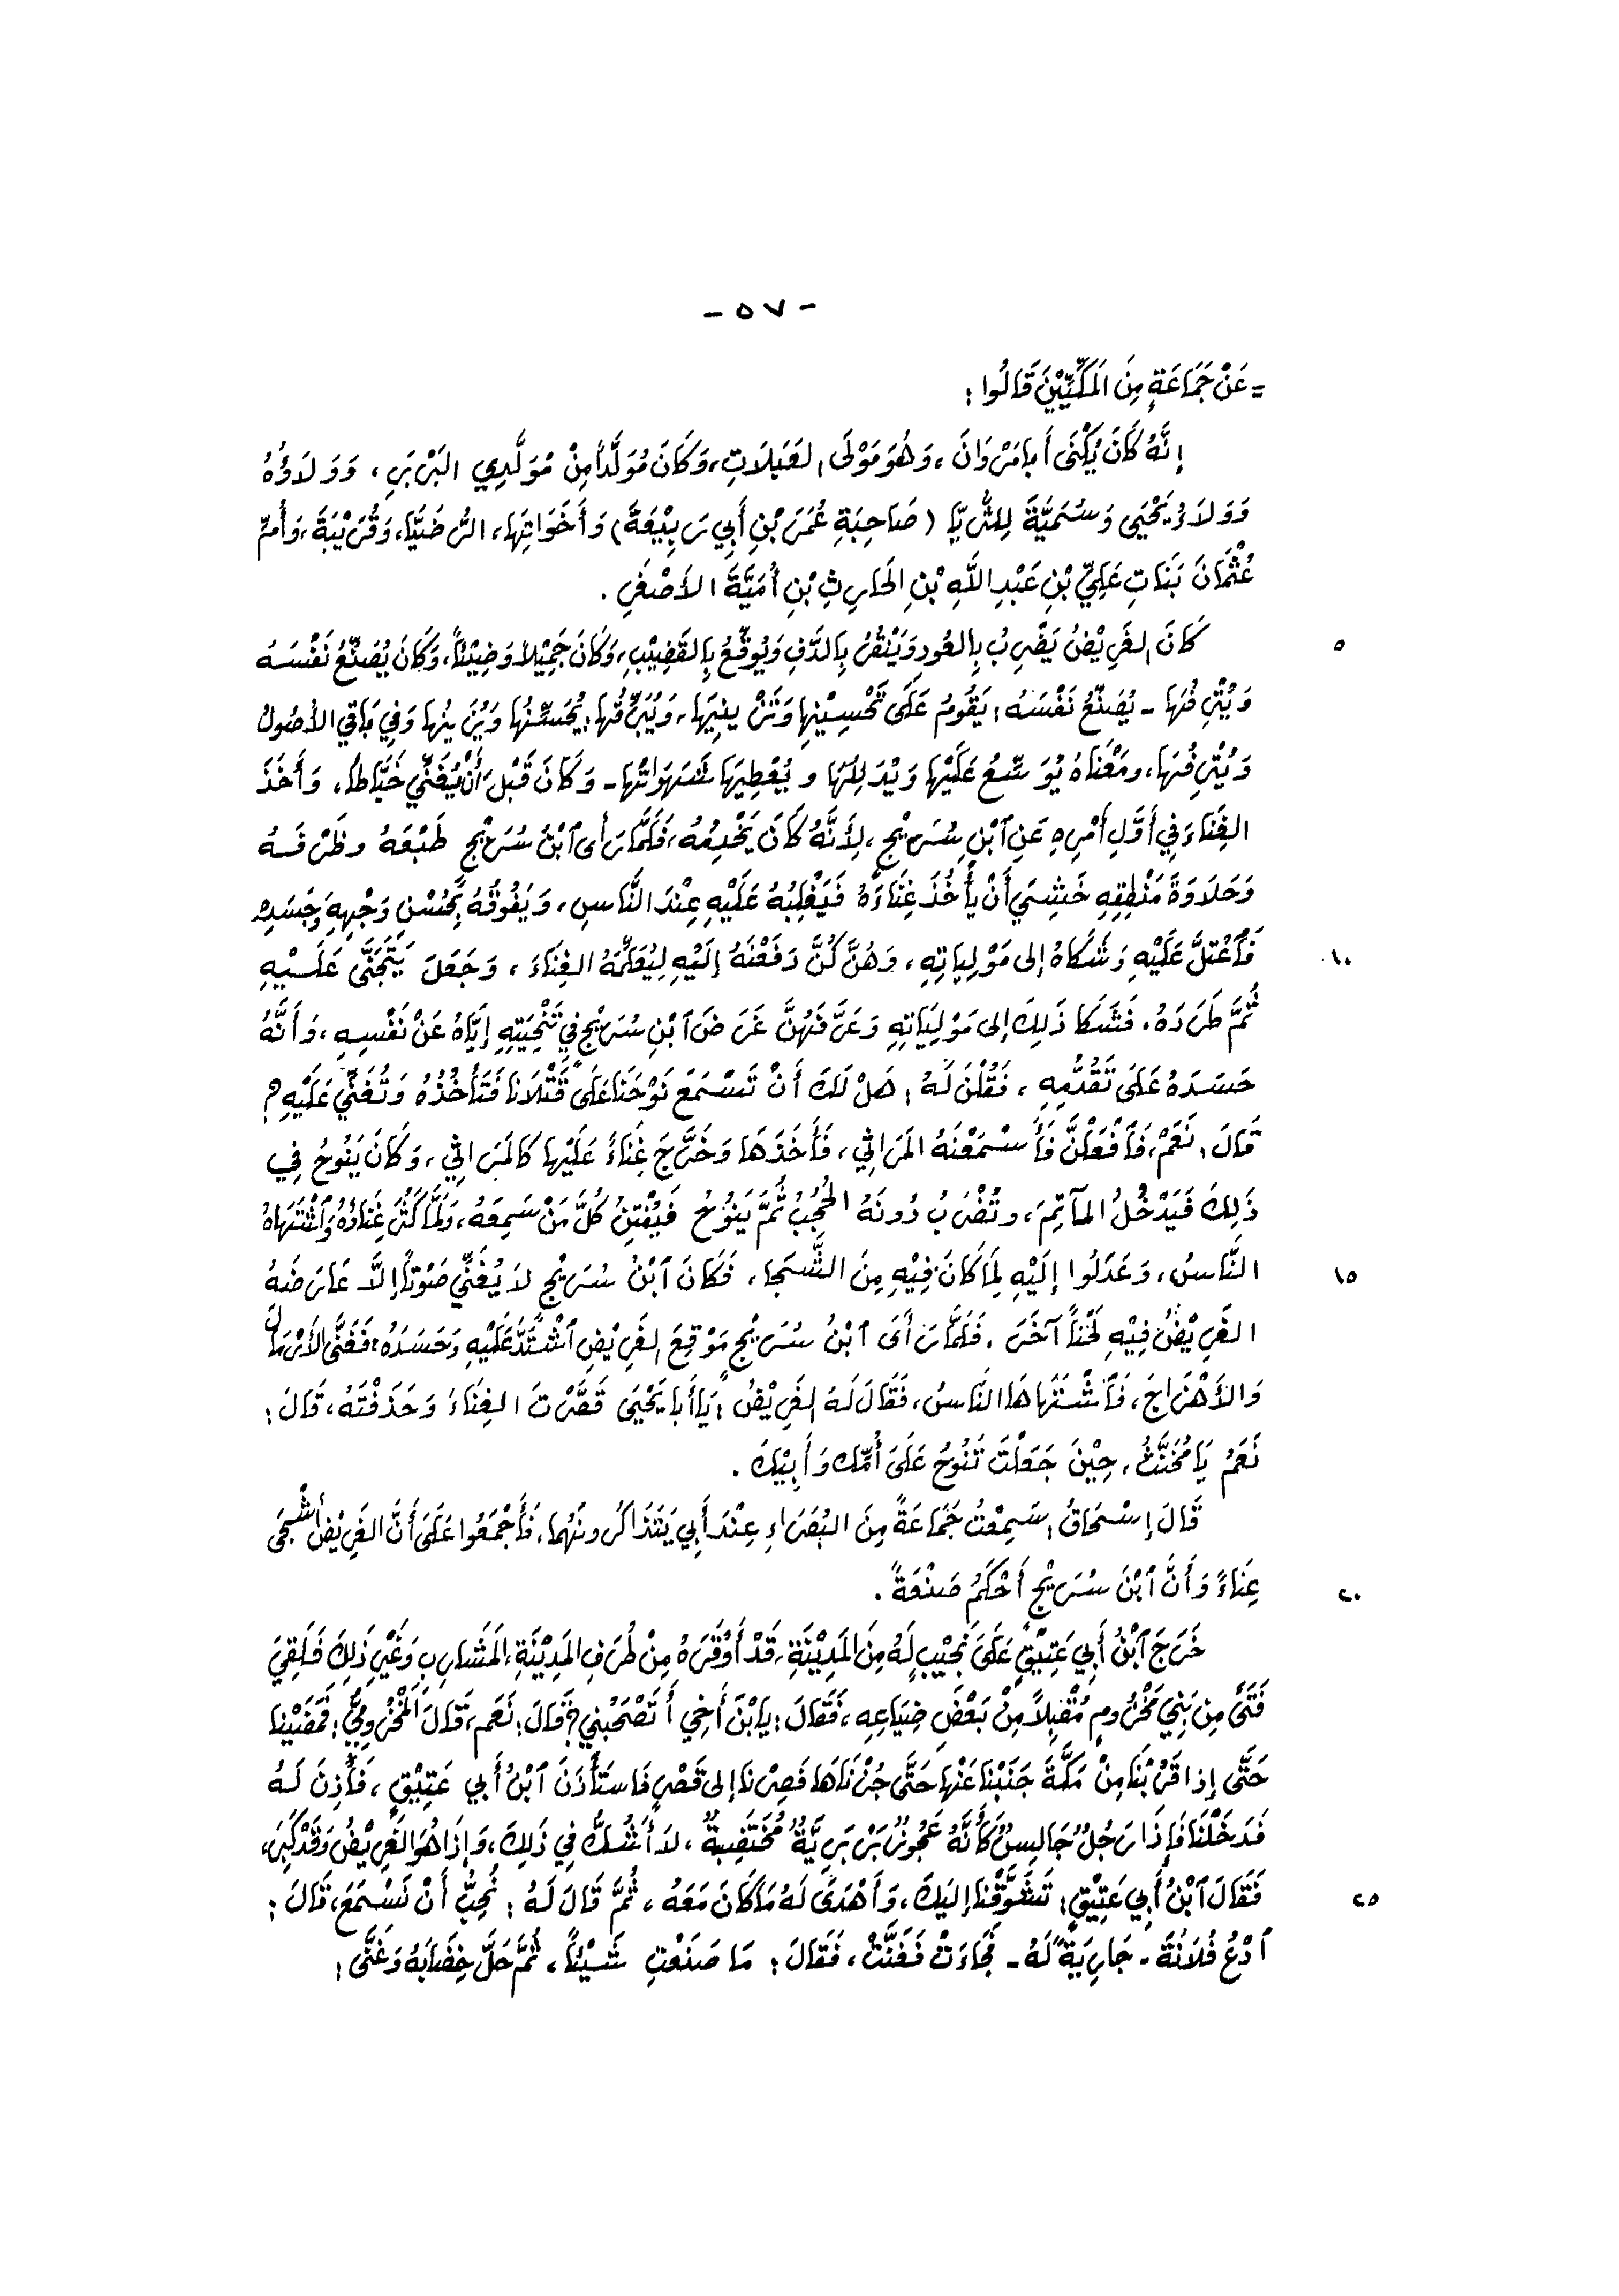 - ٥٧ -
= عَنْ جَمَاعَةٍ مِنَ المَكِّيِّيْنَ قَالُوا :
إِنَّهُ كَانَ يُكْنَى أَبا مَرْوَانَ ، وَهُوَ مَوْلَى العَبَلَاتِ ، وَكَانَ مُوَلَّداً مِنْ مُوَلَّدِي البَرْبَرِ ، وَوَلَاؤُهُ
وَوَلَاءُ يَحْيَى وَسُمَيَّةَ لِلثُّرَيَّا ( صَاحِبَةِ عُمَرَ بْنِ أَبِي رَبِيْعَةَ ) وَأَخَوَاتِهَا ، الرُّضَيَّا ، وَقُرَيْبَةَ ، وَأُمِّ
عُثْمَانَ بَنَاتِ عَلِيِّ بْنِ عَبْدِ اللَّهِ بْنِ الحَارِثِ بْنِ أُمَيَّةَ الأَصْغَرِ .
٥ كَانَ الغَرِيْضُ يَضْرِبُ بِالعُودِ وَيَنْقُرُ بِالدَّفِّ وَيُوقِّعُ بِالقَضِيْبِ ، وَكَانَ جَمِيْلاً وَضِيْئاً ، وَكَانَ يُصَنِّعُ نَفْسَهُ
وَيُتْرِفُهَا - يُصَنِّعُ نَفْسَهُ : يَقُومُ عَلَى تَحْسِيْنِهَا وَتَزْيِينِهَا ، وَيُبَرِّقُهَا : يُحَسِّنُهَا وَيُزَيِنُهَا وَفِي بَاقِي الأُصُولِ
وَيُتْرِفُهَا ، ومَعْنَاهُ يُوَسِّعُ عَلَيْهَا وَيُدَلِلُهَا و يُعْطِيَهَا شَهَوَاتِهَا - وَكَانَ قَبْلَ أَنْ يُغَنِّي خَيَّاطاً ، وَأَخَذَ
الغِنَاءَ فِي أَوَّلِ أَمْرِهِ عَنِ ٱبْنِ سُرَيْجٍ ، لِأَنَّهُ كَانَ يَخْدِمُهُ ، فَلَمَّا رَأى ٱبْنُ سُرَيْجٍ طَبْعَهُ وظَرْفَهُ
وَحَلَاوَةَ مَنْطِقِهِ خَشِيَ أَنْ يَأْخُذَ غِنَاءَهُ فَيَغْلِبُهُ عَلَيْهِ عِنْدَ النَّاسِ ، وَيَفُوقُهُ بِحُسْنِ وَجْهِهِ وَجَسَدِهِ
١٠ فَٱعْتَلَّ عَلَيْهِ وَشَكَاهُ إلى مَوْلِيَاتِهِ ، وَهُنَّ كُنَّ دَفَعْنَهُ إِلَيْهِ لِيُعَلِّمَهُ الغِنَاءَ ، وَجَعَلَ يَتَجَنَّى عَلَيْهِ
ثُمَّ طَرَدَهُ . فَشَكَا ذَلِكَ إلى مَوْلِيَاتِهِ وَعَرَّفَهُنَّ غَرَضَ ٱبْنِ سُرَيْجٍ فِي تَنْحِيَتِهِ إِيَّاهُ عَنْ نَفْسِهِ ، وَأَنَّهُ
حَسَدَهُ عَلَى تَقَدُّمِهِ ، فَقُلْنَ لَهُ : هَلْ لَكَ أَنْ تَسْمَعَ نَوْحَنَا عَلَى قَتْلَانا فَتَأْخُذُهُ وَتُغَنِّي عَلَيْهِ ؟
قَالَ : نَعَمْ ، فَٱفْعَلْنَ فَأَسْمَعْنَهُ المَرَاثِي ، فَأَخَذَهَا وَخَرَّجَ غِنَاءً عَلَيْهَا كَالمَرَاثِي ، وَكَانَ يَنُوحُ فِي
ذَلِكَ فَيَدْخُلُ المَآتِمَ ، وتُضْرَبُ دُونَهُ الحُجُبُ ثُمَّ يَنُوحُ فَيُفْتِنُ كُلَّ مَنْ سَمِعَهُ ، وَلَمَّا كَثُرَ غِنَاؤُهُ وَٱشْتَهَاهُ
١٥ النَّاسُ ، وَعَدَلُوا إِلَيْهِ لِمَا كَانَ فِيْهِ مِنَ الشَّجَا ، فَكَانَ ٱبْنُ سُرَيْجٍ لَا يُغَنِّي صَوْتاً إِلَّا عَارَضَهُ
الغَرِيْضُ فِيْهِ لَحْناً آخَرَ . فَلَمَّا رَأَى ٱبْنُ سُرَيْجٍ مَوْقِعَ الغَرِيْضِ ٱشْتَدَّ عَلَيْهِ وَحَسَدَهُ ، فَغَنَّى الأَرْمَالَ
وَالأَهْزَاجَ ، فَٱشْتَهَاهَا النَّاسُ ، فَقَالَ لَهُ الغَرِيْضُ : يَا أَبا يَحْيَى قَصَّرْتَ الغِنَاءَ وَحَذَفْتَهُ ، قَالَ :
نَعَمْ يَا مُخَنَّثُ ، حِيْنَ جَعَلْتَ تَنُوحُ عَلَى أُمِّكَ وَأَبِيْكَ .
قَالَ إِسْحَاقُ : سَمِعْتُ جَمَاعَةً مِنَ البُصَرَاءِ عِنْدَ أَبِي يَتَذَاكَرُونَهُمَا ، فَأَجْمَعُوا عَلَى أَنَّ الغَرِيْضَ أَشْجَى
٢٠ غِنَاءً وَأَنَّ ٱبْنَ سُرَيْجٍ أَحْكَمُ صَنْعَةً .
خَرَجَ ٱبْنُ أَبِي عَتِيْقٍ عَلَى نَجِيْبٍ لَهُ مِنَ المَدِيْنَةِ ، قَدْ أَوْقَرَهُ مِنْ طُرَفِ المَدِيْنَةِ ، المَشَارِبِ وَغَيْرِ ذَلِكَ فَلَقِيَ
فَتًى مِن بَنِي مَخْزُومٍ مُقْبِلاً مِنْ بَعْضِ ضِيَاعِهِ ، فَقَالَ : يا ٱبْنَ أَخِي أَتَصْحَبُنِي ؟ قَالَ : نَعَم ، قَالَ المَخْزُومِيُّ : فَمَضَيْنا
حَتَّى إِذا قَرُبْنَا مِنْ مَكَّةَ جَنَبْنَا عَنْهَا حَتَّى جُزْنَاهَا فَصِرْنَا إلى قَصْرٍ فَاستَأْذَنَ ٱبْنُ أَبِي عَتِيْقٍ ، فَأَذِنَ لَهُ
فَدَخَلْنَا فَإِذَا رَجُلٌ جَالِسٌ كَأَنَّهُ عَجُوزٌ بَرْبَرِيَّةٌ مُخْتَضِبَةٌ ، لَا أَشُكُّ فِي ذَلِكَ ، وَإِذَا هُوَ الغَرِيْضُ وَقَدْ كَبِرَ ،
٢٥ فَقَالَ ٱبْنُ أَبِي عَتِيْقٍ : تَشَوَّقْنا إلَيكَ ، وَأَهْدَى لَهُ مَا كَانَ مَعَهُ ، ثُمَّ قَالَ لَهُ : نُحِبُّ أَنْ نَسْمَعَ ، قَالَ :
ٱدْعُ فُلَانَةَ - جَارِيَةً لَهُ - فَجَاءَتْ فَغَنَّتْ ، فَقَالَ : مَا صَنَعْتِ شَيْئاً ، ثُمَّ حَلَّ خِضَابَهُ وَغَنَّى :